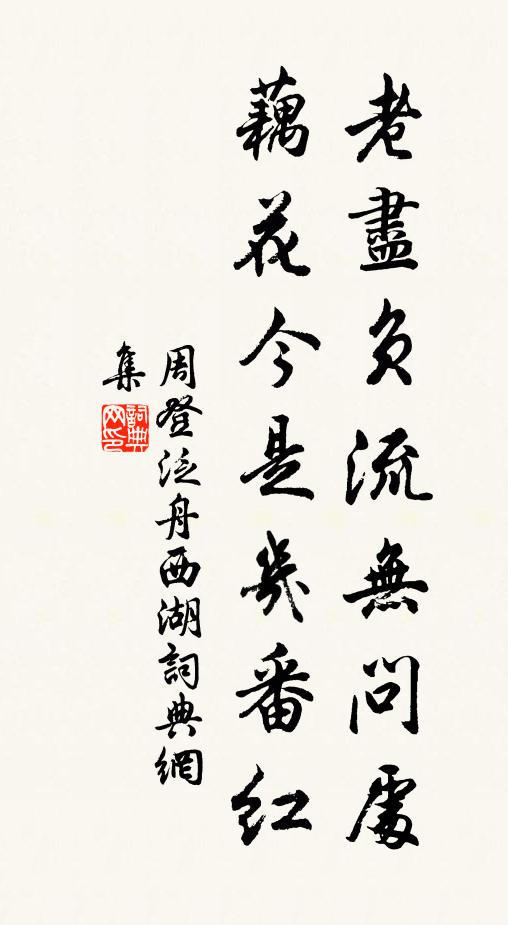 老盡風流無問處
藕花今是幾番紅
周登泛舟西湖詞典網
集
詞典
网印